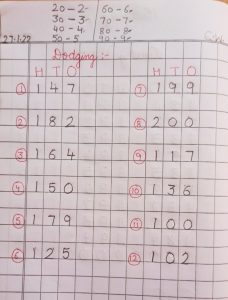 20 - 2 60 - 6
30 - 3 70 - 7
40 - 4 80 - 8
50 - 5 90 - 9
Dodging :-
H T O H T O
1 1 4 7 7 1 9 9
2 1 8 2 8 2 0 0
3 1 6 4 9 1 1 7
4 1 5 0 10 1 3 6
5 1 7 9 11 1 0 0
6 1 2 5 12 1 0 2